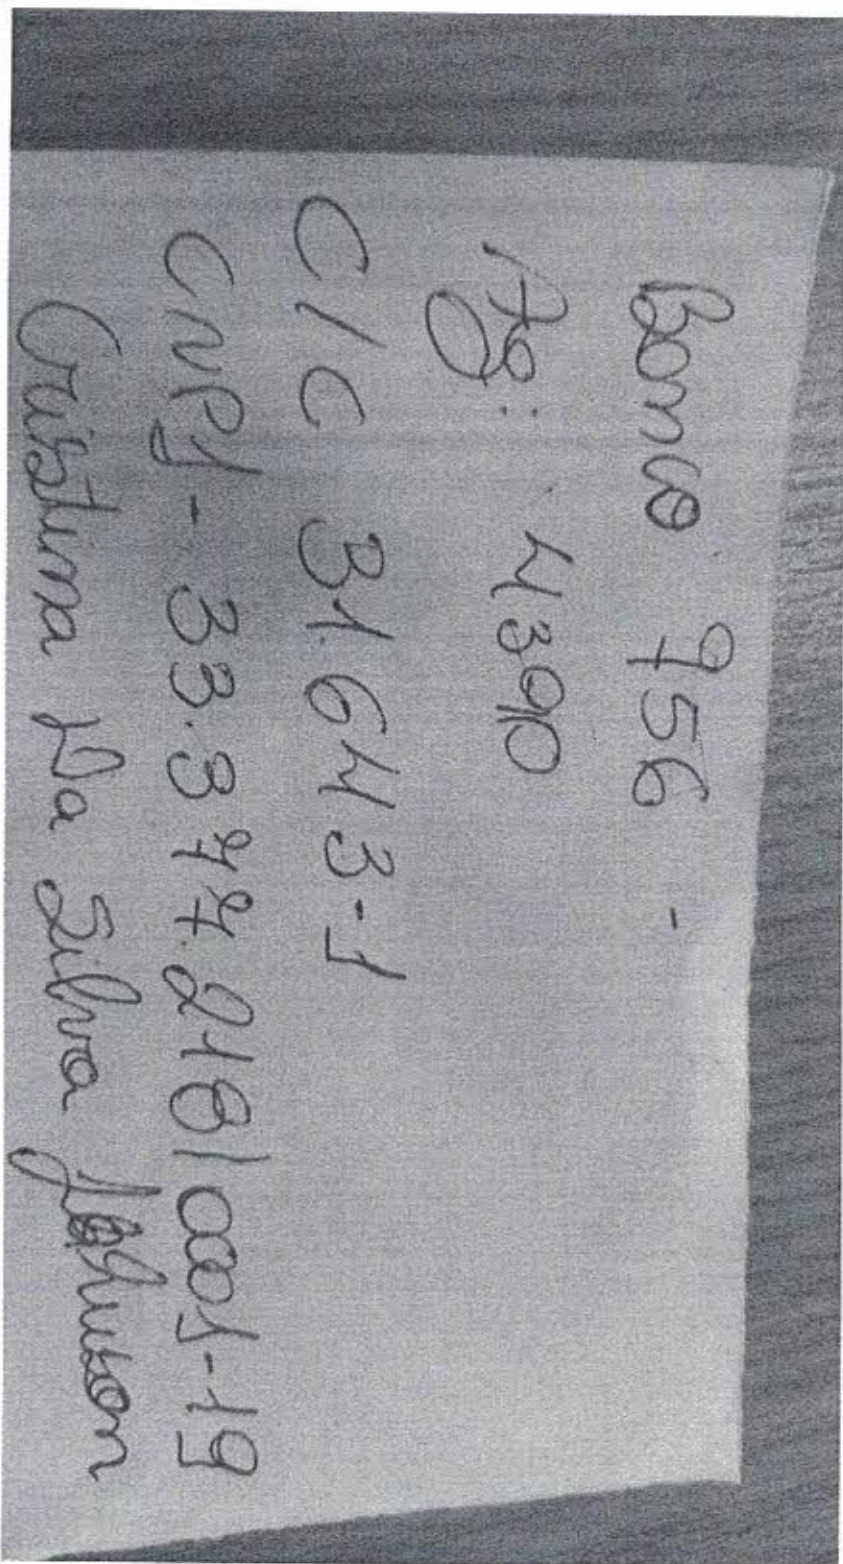 Banco 756 -
Ag: 4390
C/C 31.643-1
CNPJ - 33.377.218/0001-19
Cristina Da Silva Jahnson